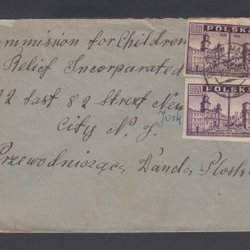 ommission for Children
Relief Incorporated
2 East 82 Street New
York
City N. Y.
Przewodnicząca Wanda
POLSKA
POLSKA